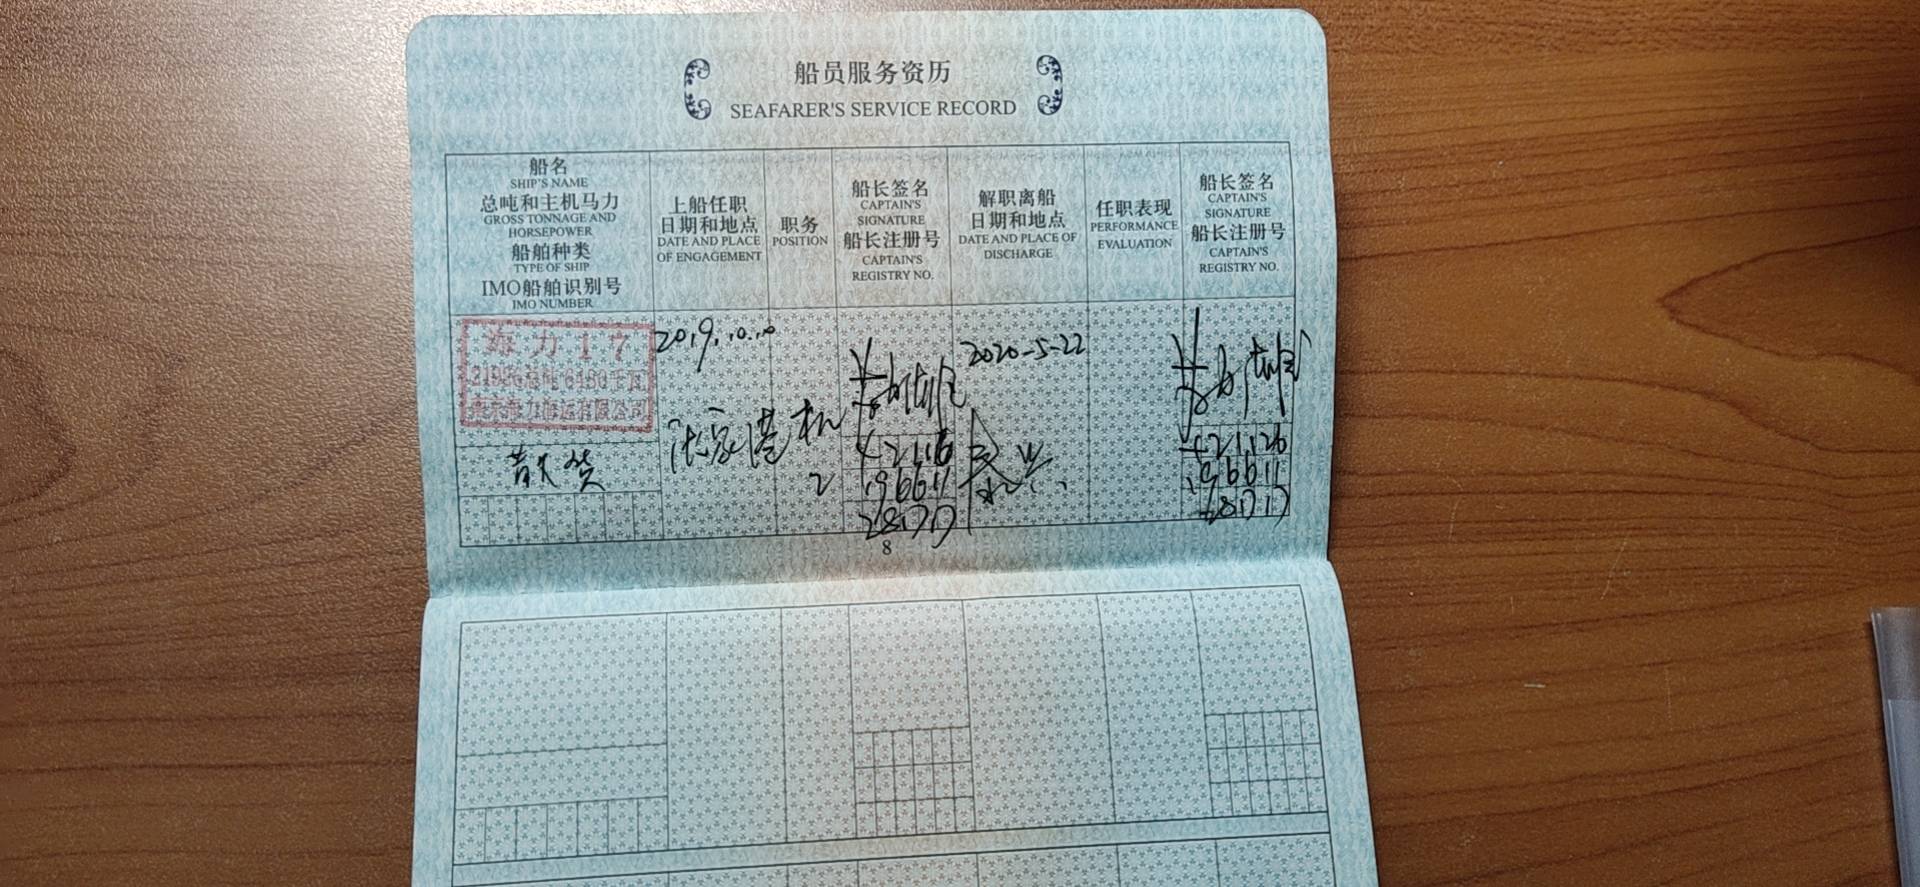 船员服务资历
SEAFARER'S SERVICE RECORD
船名
SHIP'S NAME
总吨和主机马力
GROSS TONNAGE AND
HORSEPOWER
船舶种类
TYPE OF SHIP
IMO船舶识别号
IMO NUMBER
上船任职
日期和地点
DATE AND PLACE
OF ENGAGEMENT
职务
POSITION
船长签名
CAPTAIN'S
SIGNATURE
船长注册号
CAPTAIN'S
REGISTRY NO.
解职离船
日期和地点
DATE AND PLACE OF
DISCHARGE
任职表现
PERFORMANCE
EVALUATION
船长签名
CAPTAIN'S
SIGNATURE
船长注册号
CAPTAIN'S
REGISTRY NO.
海力17
散货
2019.10.10
张家港
2020-5-22
196611
196611
8